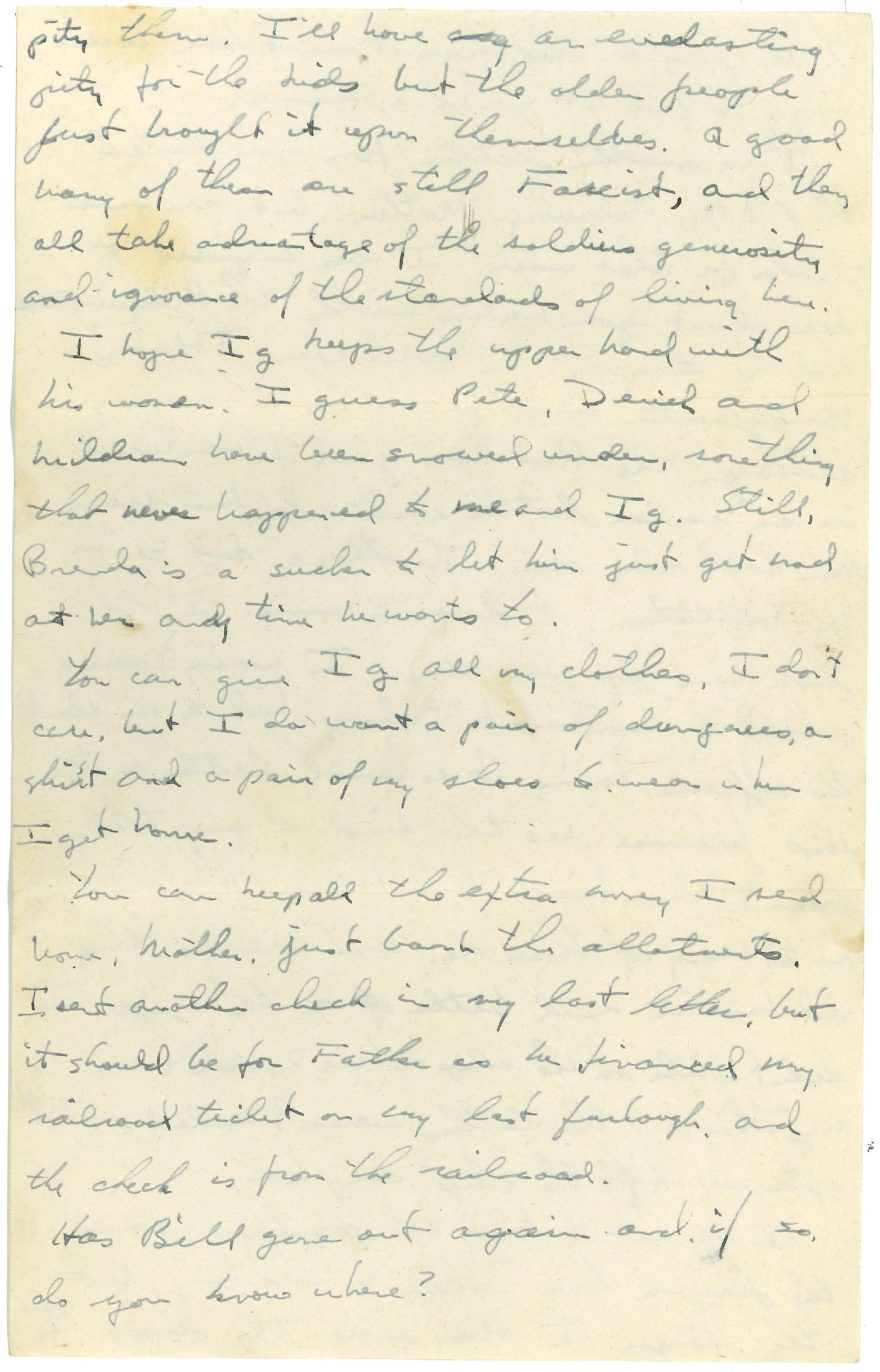 pity them. I'll have an everlasting
pity for the kids but the older people
just brought it upon themselves. A good
many of them are still Fascist, and they
all take advantage of the soldiers generosity
and ignorance of the standards of living here.
I hope Ig keeps the upper hand with
his women. I guess Pete, and
have been snowed under, something
that never happened to me and Ig. Still,
Brenda is a sucker to let him just get mad
at her any time he wants to.
You can give Ig all my clothes, I don't
care, but I do want a pair of dungarees, a
shirt and a pair of my shoes to wear when
I get home.
You can keep all the extra money I send
home, Mother, just bank the allotments.
I sent another check in my last letter, but
it should be for Father as he financed my
railroad ticket on my last furlough, and
the check is from the railroad.
Has Bill gone out again and, if so,
do you know where?